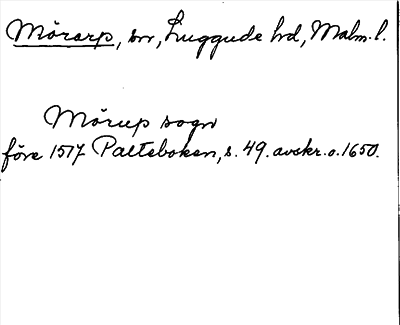 Mörarp, sn, Luggude hd, Malm. l.
Mörup sogn
före 1517 Palteboken, s. 49. avskr. o. 1650.